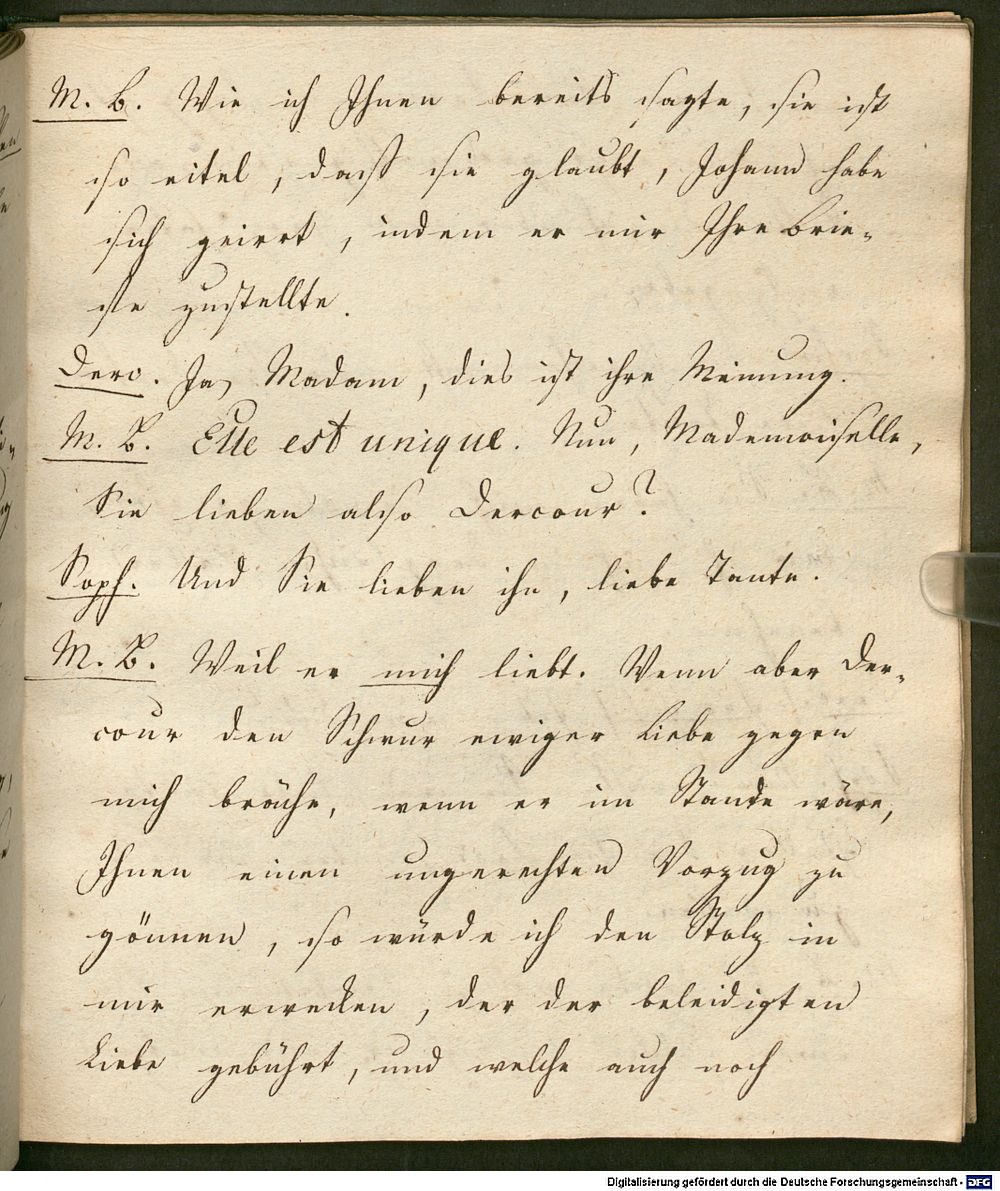 M. B. Wie ich Ihnen bereits sagte, sie ist
so eitel, dass sie glaubt, Johann habe
sich geirrt, indem er mir Ihre Brie-
fe zustellte.
Derc. Ja, Madam, dies ist ihre Meinung.
M. B. Elle est unique. Nun, Mademoiselle,
Sie lieben also Dercour?
Soph. Und Sie lieben ihn, liebe Tante.
M. B. Weil er mich liebt. Wenn aber Der-
cour den Schwur ewiger Liebe gegen
mich bräche, wenn er im Stande wäre,
Ihnen einen ungerechten Vorzug zu
gönnen, so würde ich den Stolz in
mir erwecken, der der beleidigten
Liebe gebührt, und welche auch noch
Digitalisierung gefördert durch die Deutsche Forschungsgemeinschaft - DFG